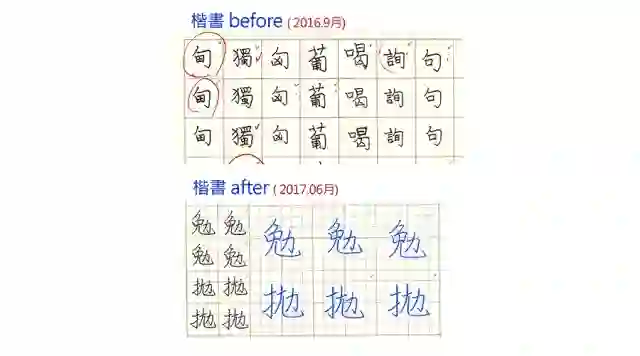 楷書 before ( 2016.9月)
甸 獨 匈 葡 喝 詢 句
甸 獨 匈 葡 喝 詢 句
甸 獨 匈 葡 喝 詢 句
楷書 after ( 2017.06月)
勉 勉 勉 勉 勉
勉 勉
拋 拋 拋 拋 拋
拋 拋